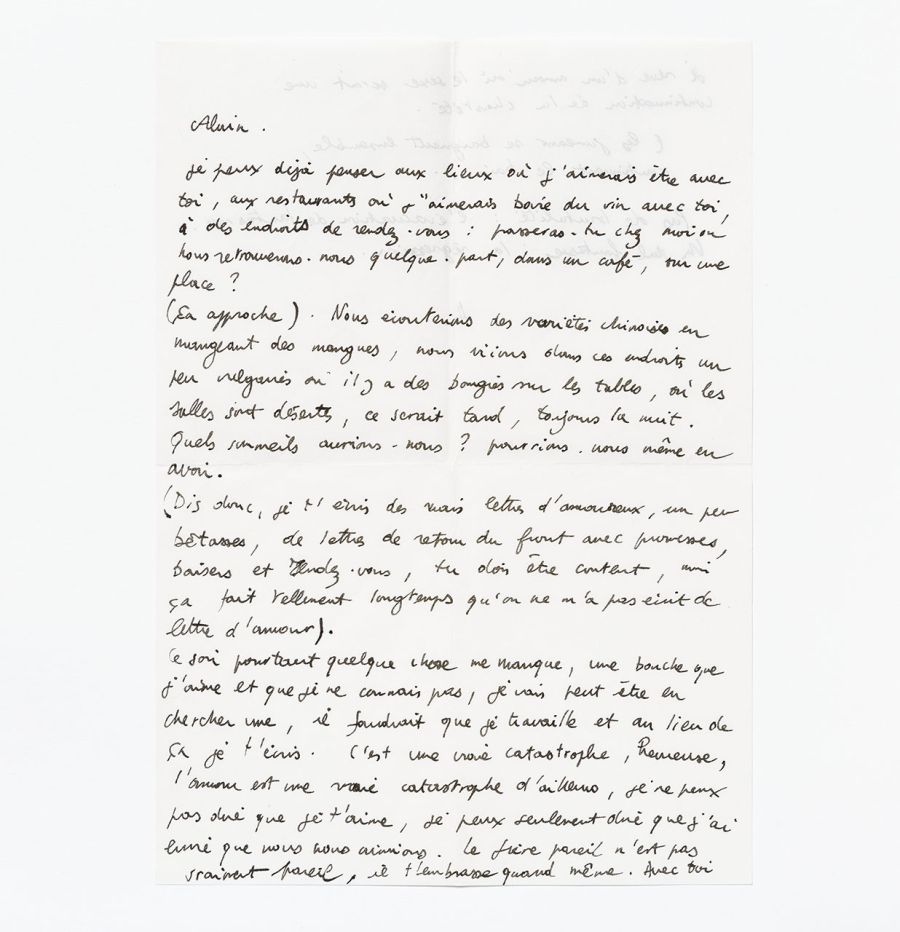 Alain.
je peux déjà penser aux lieux où j'aimerais être avec
toi, aux restaurants où j'aimerais boire du vin avec toi,
à des endroits de rendez-vous : passeras-tu chez moi ou
nous retrouverons-nous quelque-part, dans un café, sur une
place ?
(ça approche). Nous écouterions des variétés chinoises en
mangeant des mangues, nous irions dans ces endroits un
peu vulgaires où il y a des bougies sur les tables, où les
salles sont désertes, ce serait tard, toujours la nuit.
Quels sommeils aurions-nous ? pourrions-nous même en
avoir.
(Dis donc, je t'écris des vraies lettres d'amoureux, un peu
bêtasses, de lettres de retour du front avec promesses,
baisers et rendez-vous, tu dois être content,
ça fait tellement longtemps qu'on ne m'a pas écrit de
lettre d'amour).
Ce soir pourtant quelque chose me manque, une bouche que
j'aime et que je ne connais pas, je vais peut être en
chercher une, il faudrait que je travaille et au lieu de
ça je t'écris. C'est une vraie catastrophe, heureuse,
l'amour est une vraie catastrophe d'ailleurs, je ne peux
pas dire que je t'aime, je peux seulement dire que j'ai
envie que nous nous aimions. Le frère pareil n'est pas
vraiment pareil, il t'embrasse quand même. Avec toi